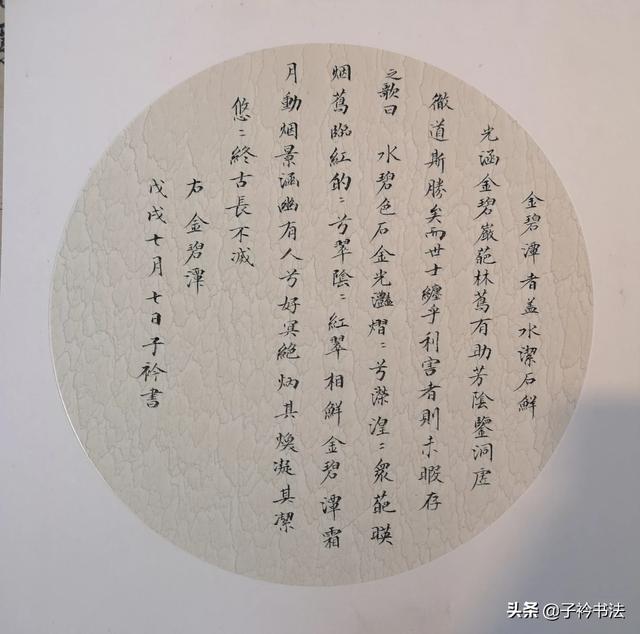 金碧潭者蓋水潔石鮮
光涵金碧嚴葩林蔦有助芳陰鑒洞虛
徹道斯勝矣而世士纏乎利害者則未暇存
之歌曰 水碧色石金光灩熠〻兮濴湟〻泉葩暎
烟蔦臨紅的〻兮翠陰〻紅翠相鮮金碧潭霜
月動烟景涵幽有人兮好冥絕炳其煥凝其潔
悠〻終古長不滅
右金碧潭
戊戌七月七日子衿書
头条@子衿书法